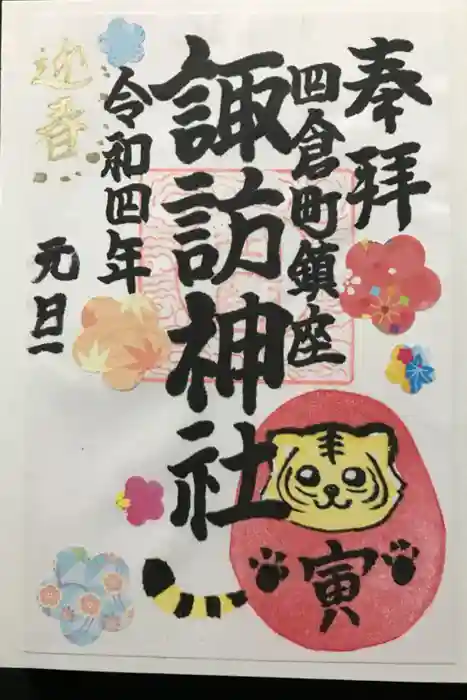 奉拝
四倉町鎮座
諏訪神社
令和四年
元日
迎春
寅